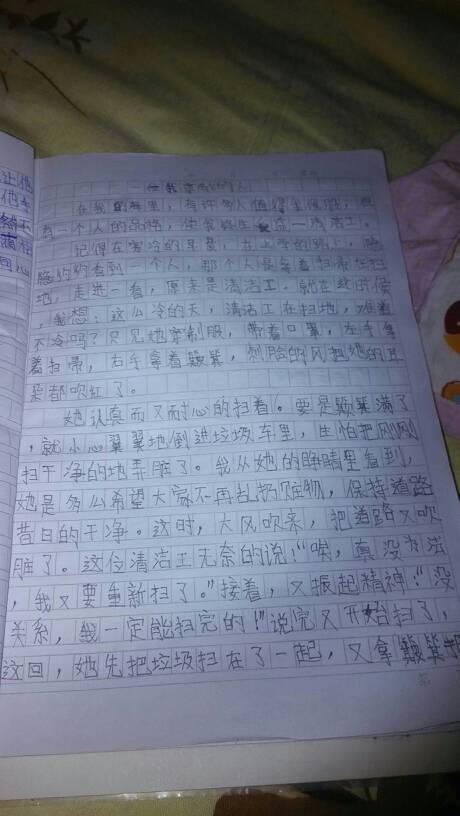 一位我敬佩的人
在我的 里,有许多人值得我佩服,但
有一个人的品格,使我终生 —清洁工。
记得在寒冷的早晨,在上学的路上,隐
隐约约看到一个人,那个人是拿着扫帚在扫
地,走进一看,原来是清洁工。就在这时候
,我想:这么冷的天,清洁工在扫地,难道
不冷吗?只见她穿制服,带着口罩,左手拿
着扫帚,右手拿着簸箕,刺脸的风把她的耳
朵都吹红了。
她认真而又耐心的扫着。要是簸箕满了
,就小心翼翼地倒进垃圾车里,生怕把刚刚
扫干净的地弄脏了。我从她的眼睛里看到,
她是多么希望大家不再乱扔 物,保持道路
昔日的干净。这时,大风吹来,把道路又吹
脏了。这位清洁工无奈的说:“唉,真没办法
,我又要重新扫了。”接着,又振起精神:“没
关系,我一定能扫完的!”说完又开始扫了,
这回,她先把垃圾扫在了一起,又拿簸箕把
让他